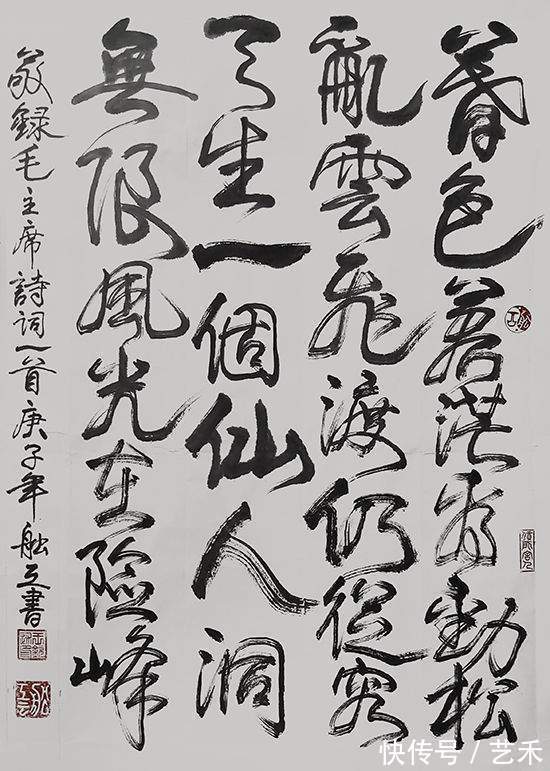 暮色蒼茫看勁松
亂雲飛渡仍從容
天生一個仙人洞
無限風光在險峰
敬録毛主席詩詞一首庚子年書
快传号 / 艺禾